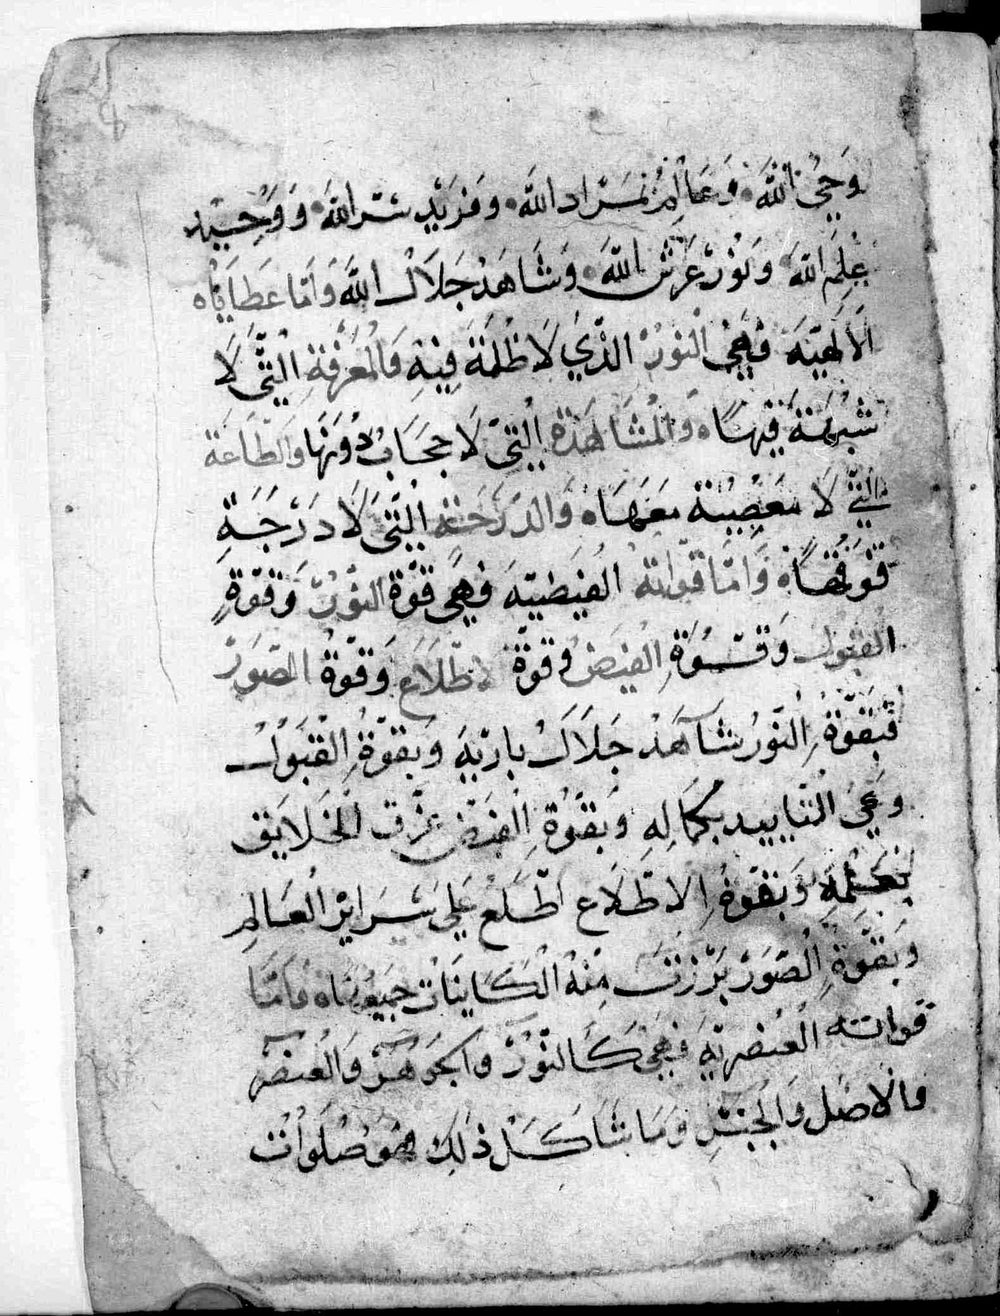 وَحَيُ اللَّه وَعَالِمُ بِمَرَاد اللَّه وَفَرِيْدِ سِر اللَّه وَوَحِيْد
عِلمِ اللَّه وَنُوْرُ عَرْش اللَّه وَشَاهَدْ جَلَالَ اللَّه وَامَّا عَطَايَاه
الَالَهيّة فَهِيَ النُوْرُ الذّي لَا ظُلْمَة فِيْهِ وَالْمَعْرِفَةِ الْتَّي لَا
شُبْهَة فِيْهَا وَالْمُشَاهَدَة الْتي لَا حِجَابُ دُوْنَهَا وَالطَّاعَة
الْتّي لَا مَعْصِيَة مَعَهَا وَالدَرَجَة الْتَّي لَا دَرَجَةِ
فَوْقَهَا وَامَّا قُوَاته الْفَيْضِيّه فَهِيَ قُوّة النُوْرُ وَقُوّةِ
القَبُولُ وَقُوّةِ الفَيْض وَقُوّة الاطّلَاع وَقُوّة الصُوَرْ
فَبِقُوّةِ النُّورُ شَاهَدْ جَلَالُ بَارِيْهِ وَبِقُوّة القَبُوْلُ
وَعَيَ الْتَّايِيد بِكَمَالِهِ وَبِقُوَّة الفَيْض غَرَّق الْخَلَايَق
بَعِلْمِهِ وَبِقُوّة الاطّلَاع اطَّلَعْ عَلَي سَرَايِرُ الْعَالَمِ
وَبِقُوّةِ الْصُوَرْ بَرَزَتْ مِنْهُ الْكَايِنَات جَمِيْعَهَا وَامَّا
قُواته الْعُنْصُرِيّة فَهِيَ كَالنُوْرُ وَالجَوْهَرْ وَالْعُنْصُرْ
وَالْاصْلِ وَالْجِنْسِ وَمَا شَاكَلْ ذَلِكَ فَهُوَ صَلَوَاتْ